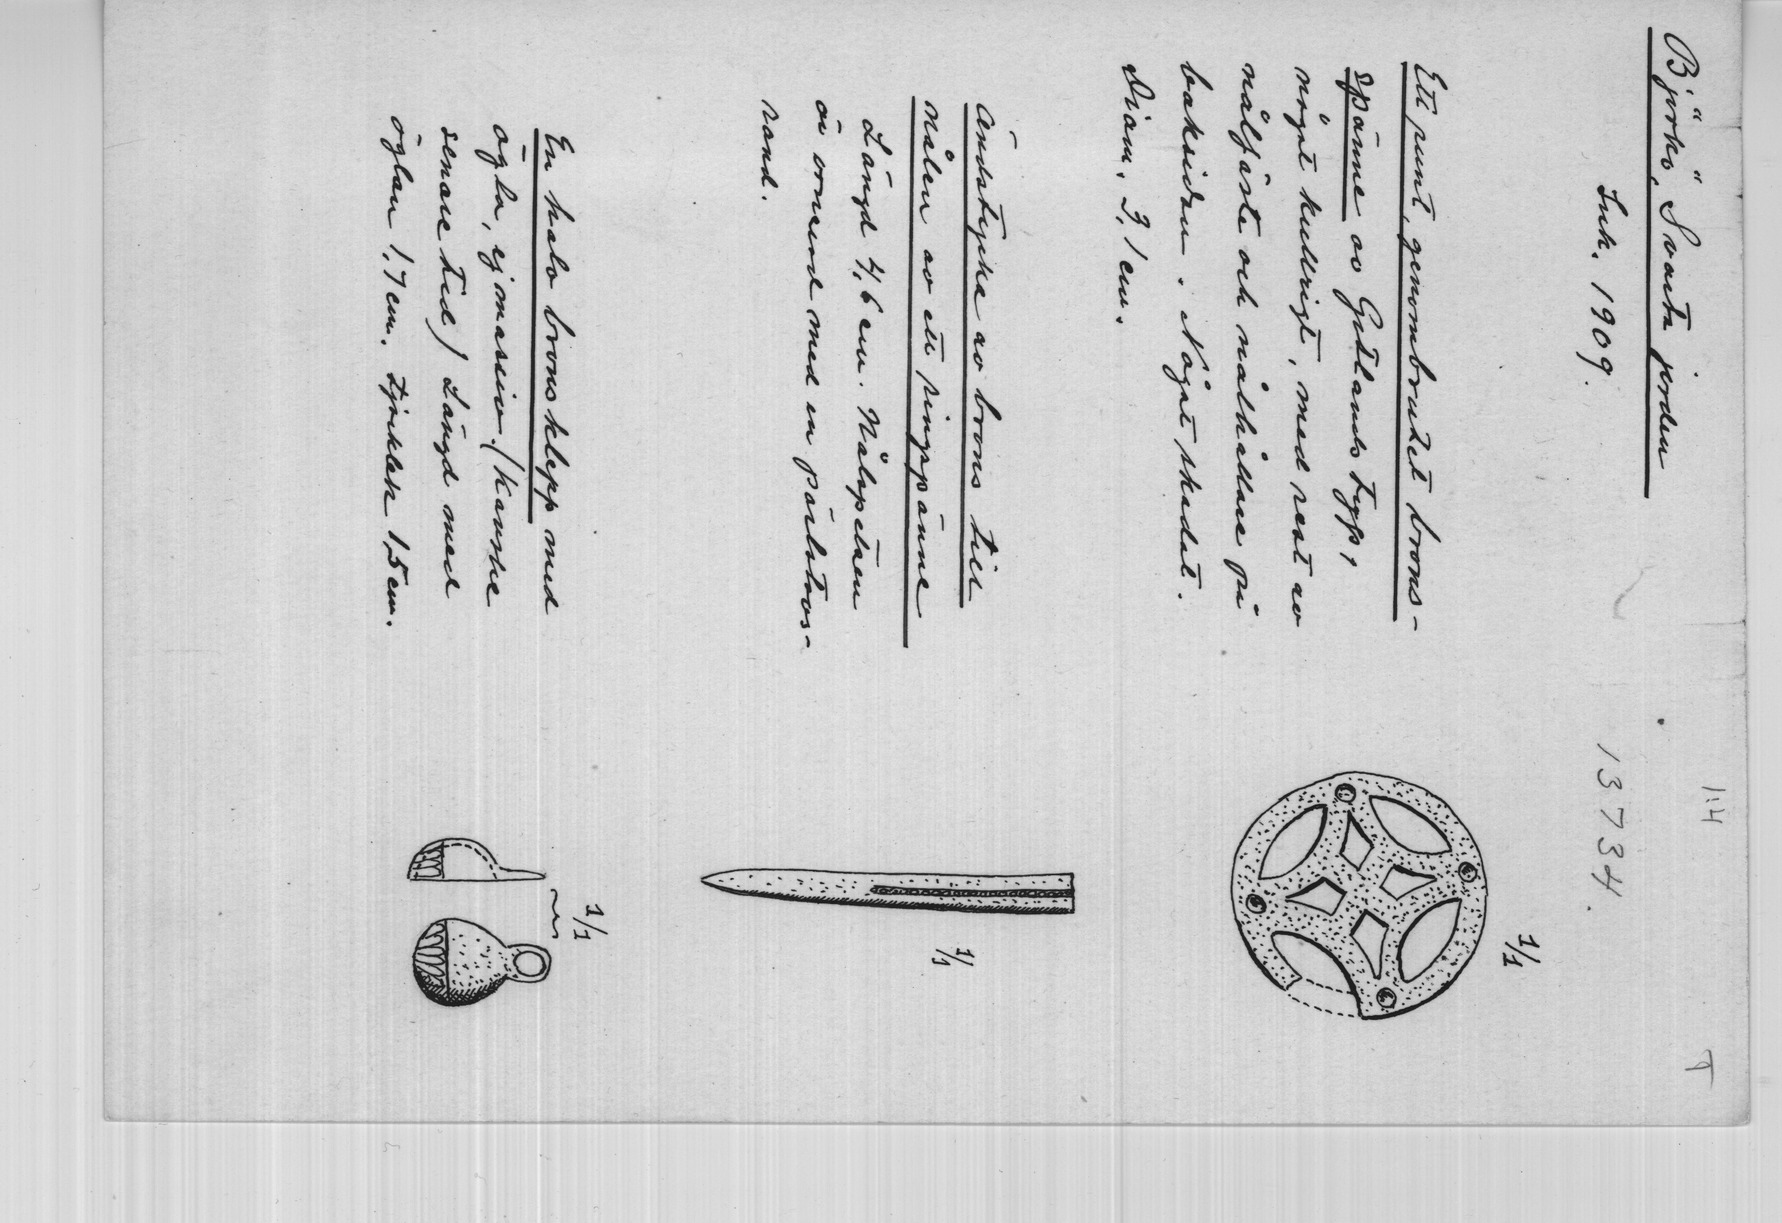 1:4
T
Björkö, Svarta jorden
Ink. 1909.
13734.
Ett runt, genombrutet brons-
spänne av Gotlands typ,
något kullrigt, med rest av
nålfäste och nålhållare på
baksidan. Något skadat.
Diam. 3,1 cm.
1/1
Ändstycke av brons till
nålen av ett ringspänne
Längd 4,6 cm. Nålspetsen
är ornerad med en pärlstavs-
rand.
1/1
En halv bronsklepp med
ögla, ej massiv. (Kanske
senare tid) Längd med
öglan 1,7 cm. Tjocklek 1,5 cm.
1/1